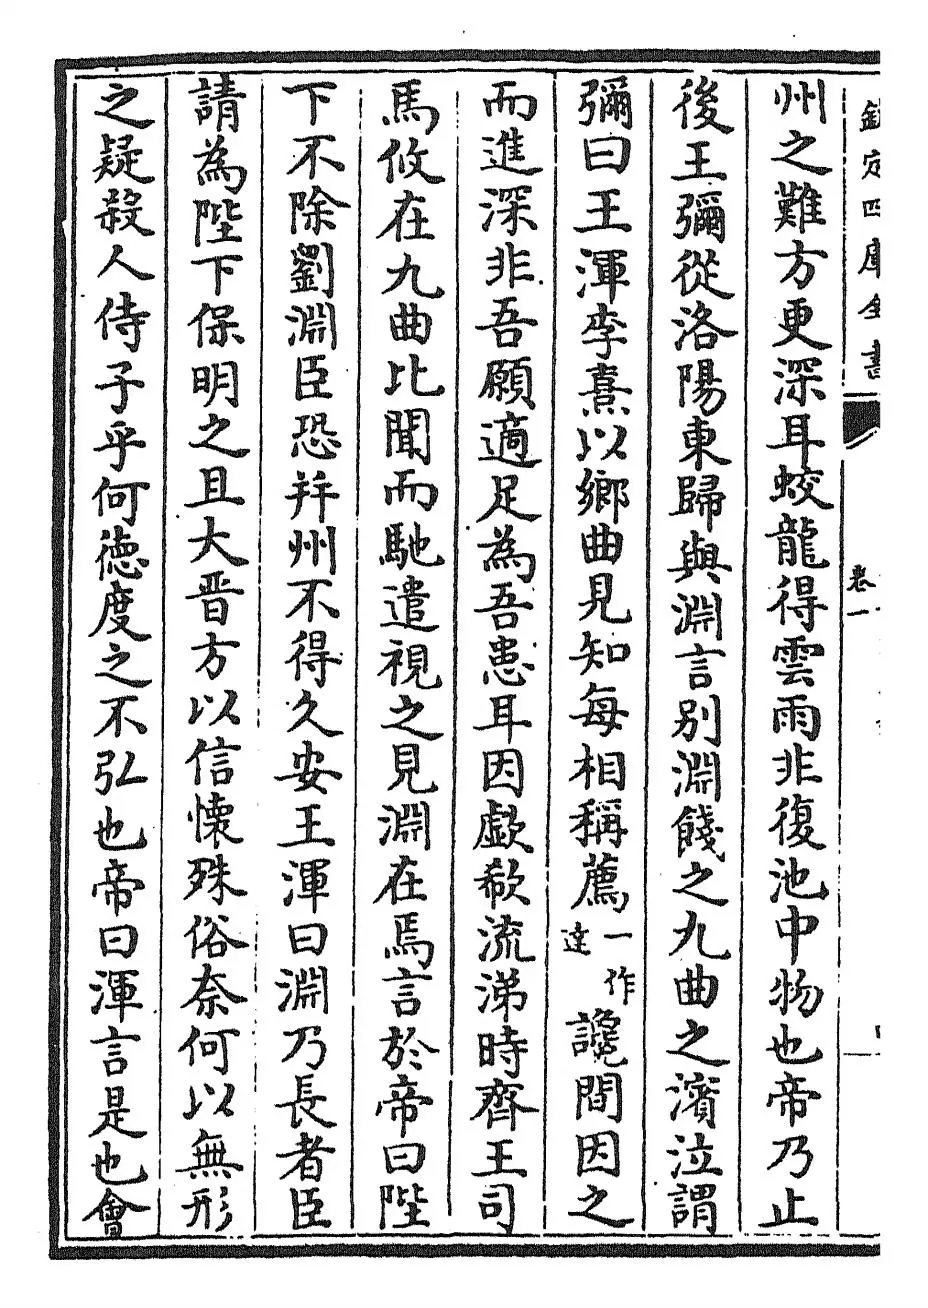 欽定四庫全書
卷一
州之難方更深耳蛟龍得雲雨非復池中物也帝乃止
後王彌從洛陽東歸與淵言別淵餞之九曲之濱泣謂
彌曰王渾李熹以鄉曲見知每相稱薦一作達讒間因之
而進深非吾願適足為吾患耳因歔欷流涕時齊王司
馬攸在九曲比聞而馳遣視之見淵在焉言於帝曰陛
下不除劉淵臣恐并州不得久安王渾曰淵乃長者臣
請為陛下保明之且大晋方以信懐殊俗奈何以無形
之疑殺人侍子乎何徳度之不弘也帝曰渾言是也會